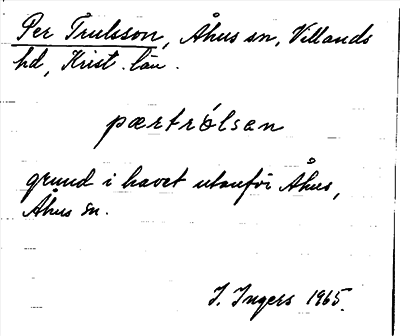 Per Trulsson, Åhus sn, Villands
hd, Krist. län.
pærtrólsan
grund i havet utanför Åhus,
Åhus sn.
I. Ingers 1965.